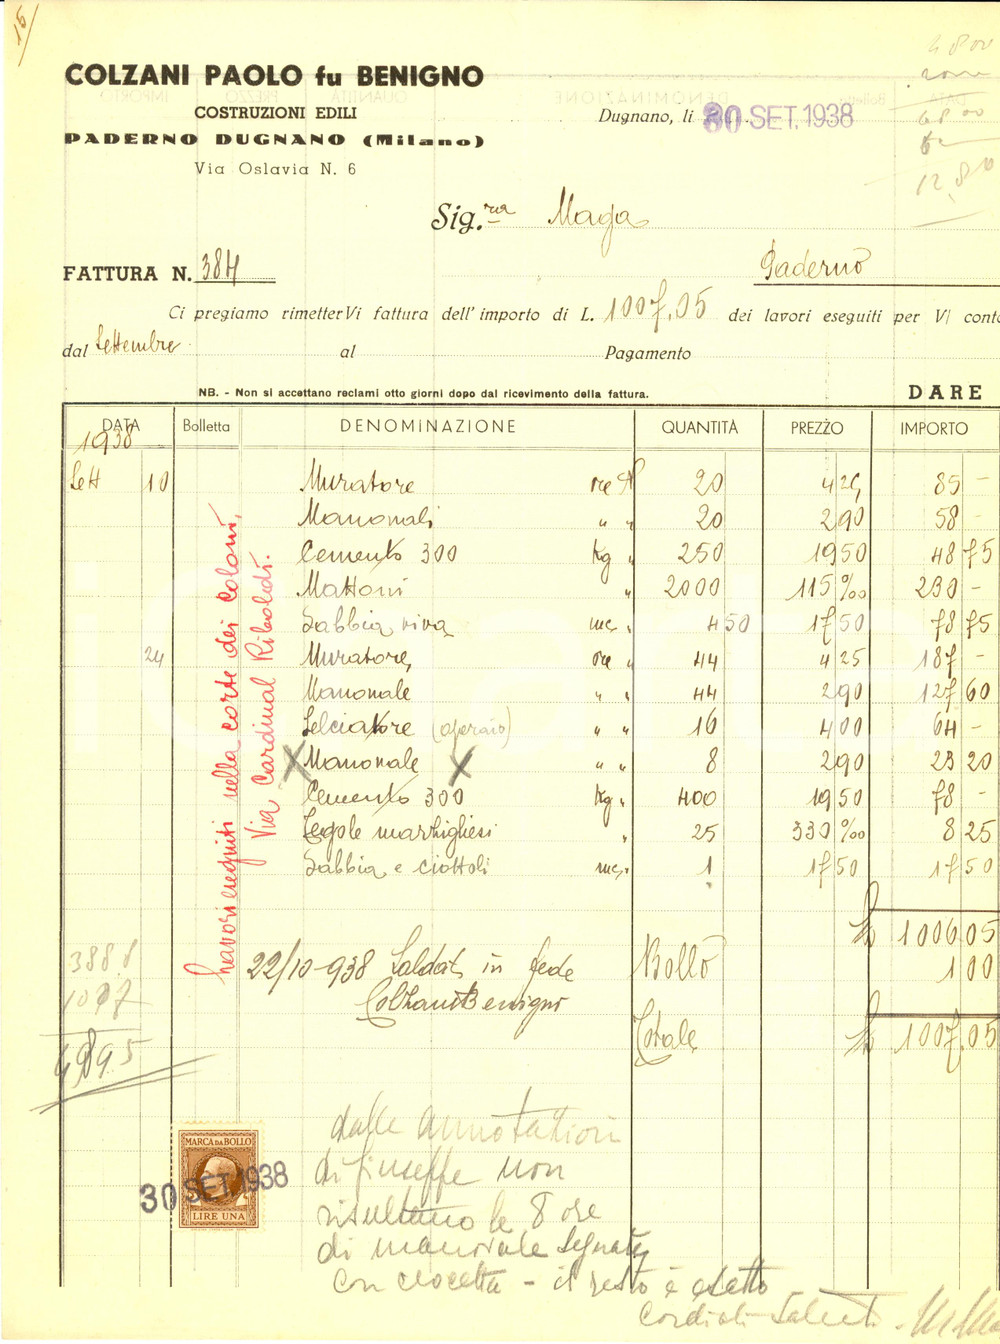 15/
COLZANI PAOLO fu BENIGNO
COSTRUZIONI EDILI
PADERNO DUGNANO (Milano)
Via Oslavia N. 6
Dugnano, li 30 SET. 1938
Sig.ra Maga
Paderno
FATTURA N. 384
Ci pregiamo rimetterVi fattura dell'importo di L. 1007,05 dei lavori eseguiti per V/ conto
dal Settembre al Pagamento
NB. - Non si accettano reclami otto giorni dopo dal ricevimento della fattura.
DARE
DATA Bolletta DENOMINAZIONE QUANTITÀ PREZZO IMPORTO
1938
Sett 10 Muratore ore N 20 4 25 85 -
Manovali " " 20 2 90 58 -
Cemento 300 Kg " 250 19 50 48 75
Mattoni " 2000 115 ‰ 230 -
Sabbia viva mc. " 4 50 17 50 78 75
24 Muratore, ore " 44 4 25 187 -
Manovale " " 44 2 90 127 60
Selciatore (operaio) " " 16 4 00 64 -
X Manovale X " " 8 2 90 23 20
Cemento 300 Kg " 400 19 50 78 -
Tegole marsigliesi " 25 330 ‰ 8 25
Sabbia e ciottoli mc. 1 17 50 17 50
Lavori eseguiti nella corte dei coloni,
Via Cardinal Riboldi.
£ 1006.05
Bollo 1 00
Totale £ 1007.05
22/10-938 Saldato in fede
Colzani Benigno
3888
1007
4895
MARCA DA BOLLO
30 SET. 1938
LIRE UNA
dalle annotazioni
di Giuseppe non
risultano le 8 ore
di manovale segnate
con crocetta - il resto è esatto
Cordiali Saluti